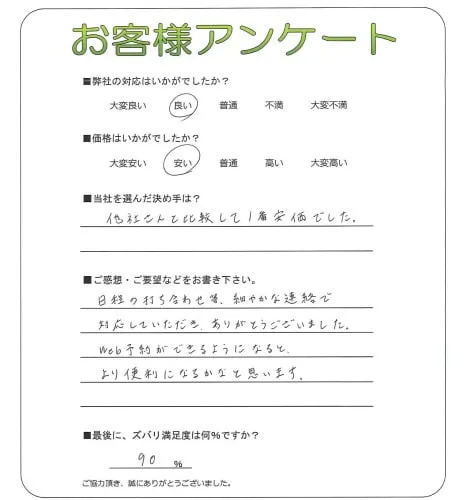 お客様アンケート
■弊社の対応はいかがでしたか？
大変良い 良い 普通 不満 大変不満
■価格はいかがでしたか？
大変安い 安い 普通 高い 大変高い
■当社を選んだ決め手は？
他社さんと比較して1番安価でした。
■ご感想・ご要望などをお書き下さい。
日程の打ち合わせ等、細やかな連絡で
対応していただき、ありがとうございました。
Web予約ができるようになると、
より便利になるかなと思います。
■最後に、ズバリ満足度は何％ですか？
90 ％
ご協力頂き、誠にありがとうございました。